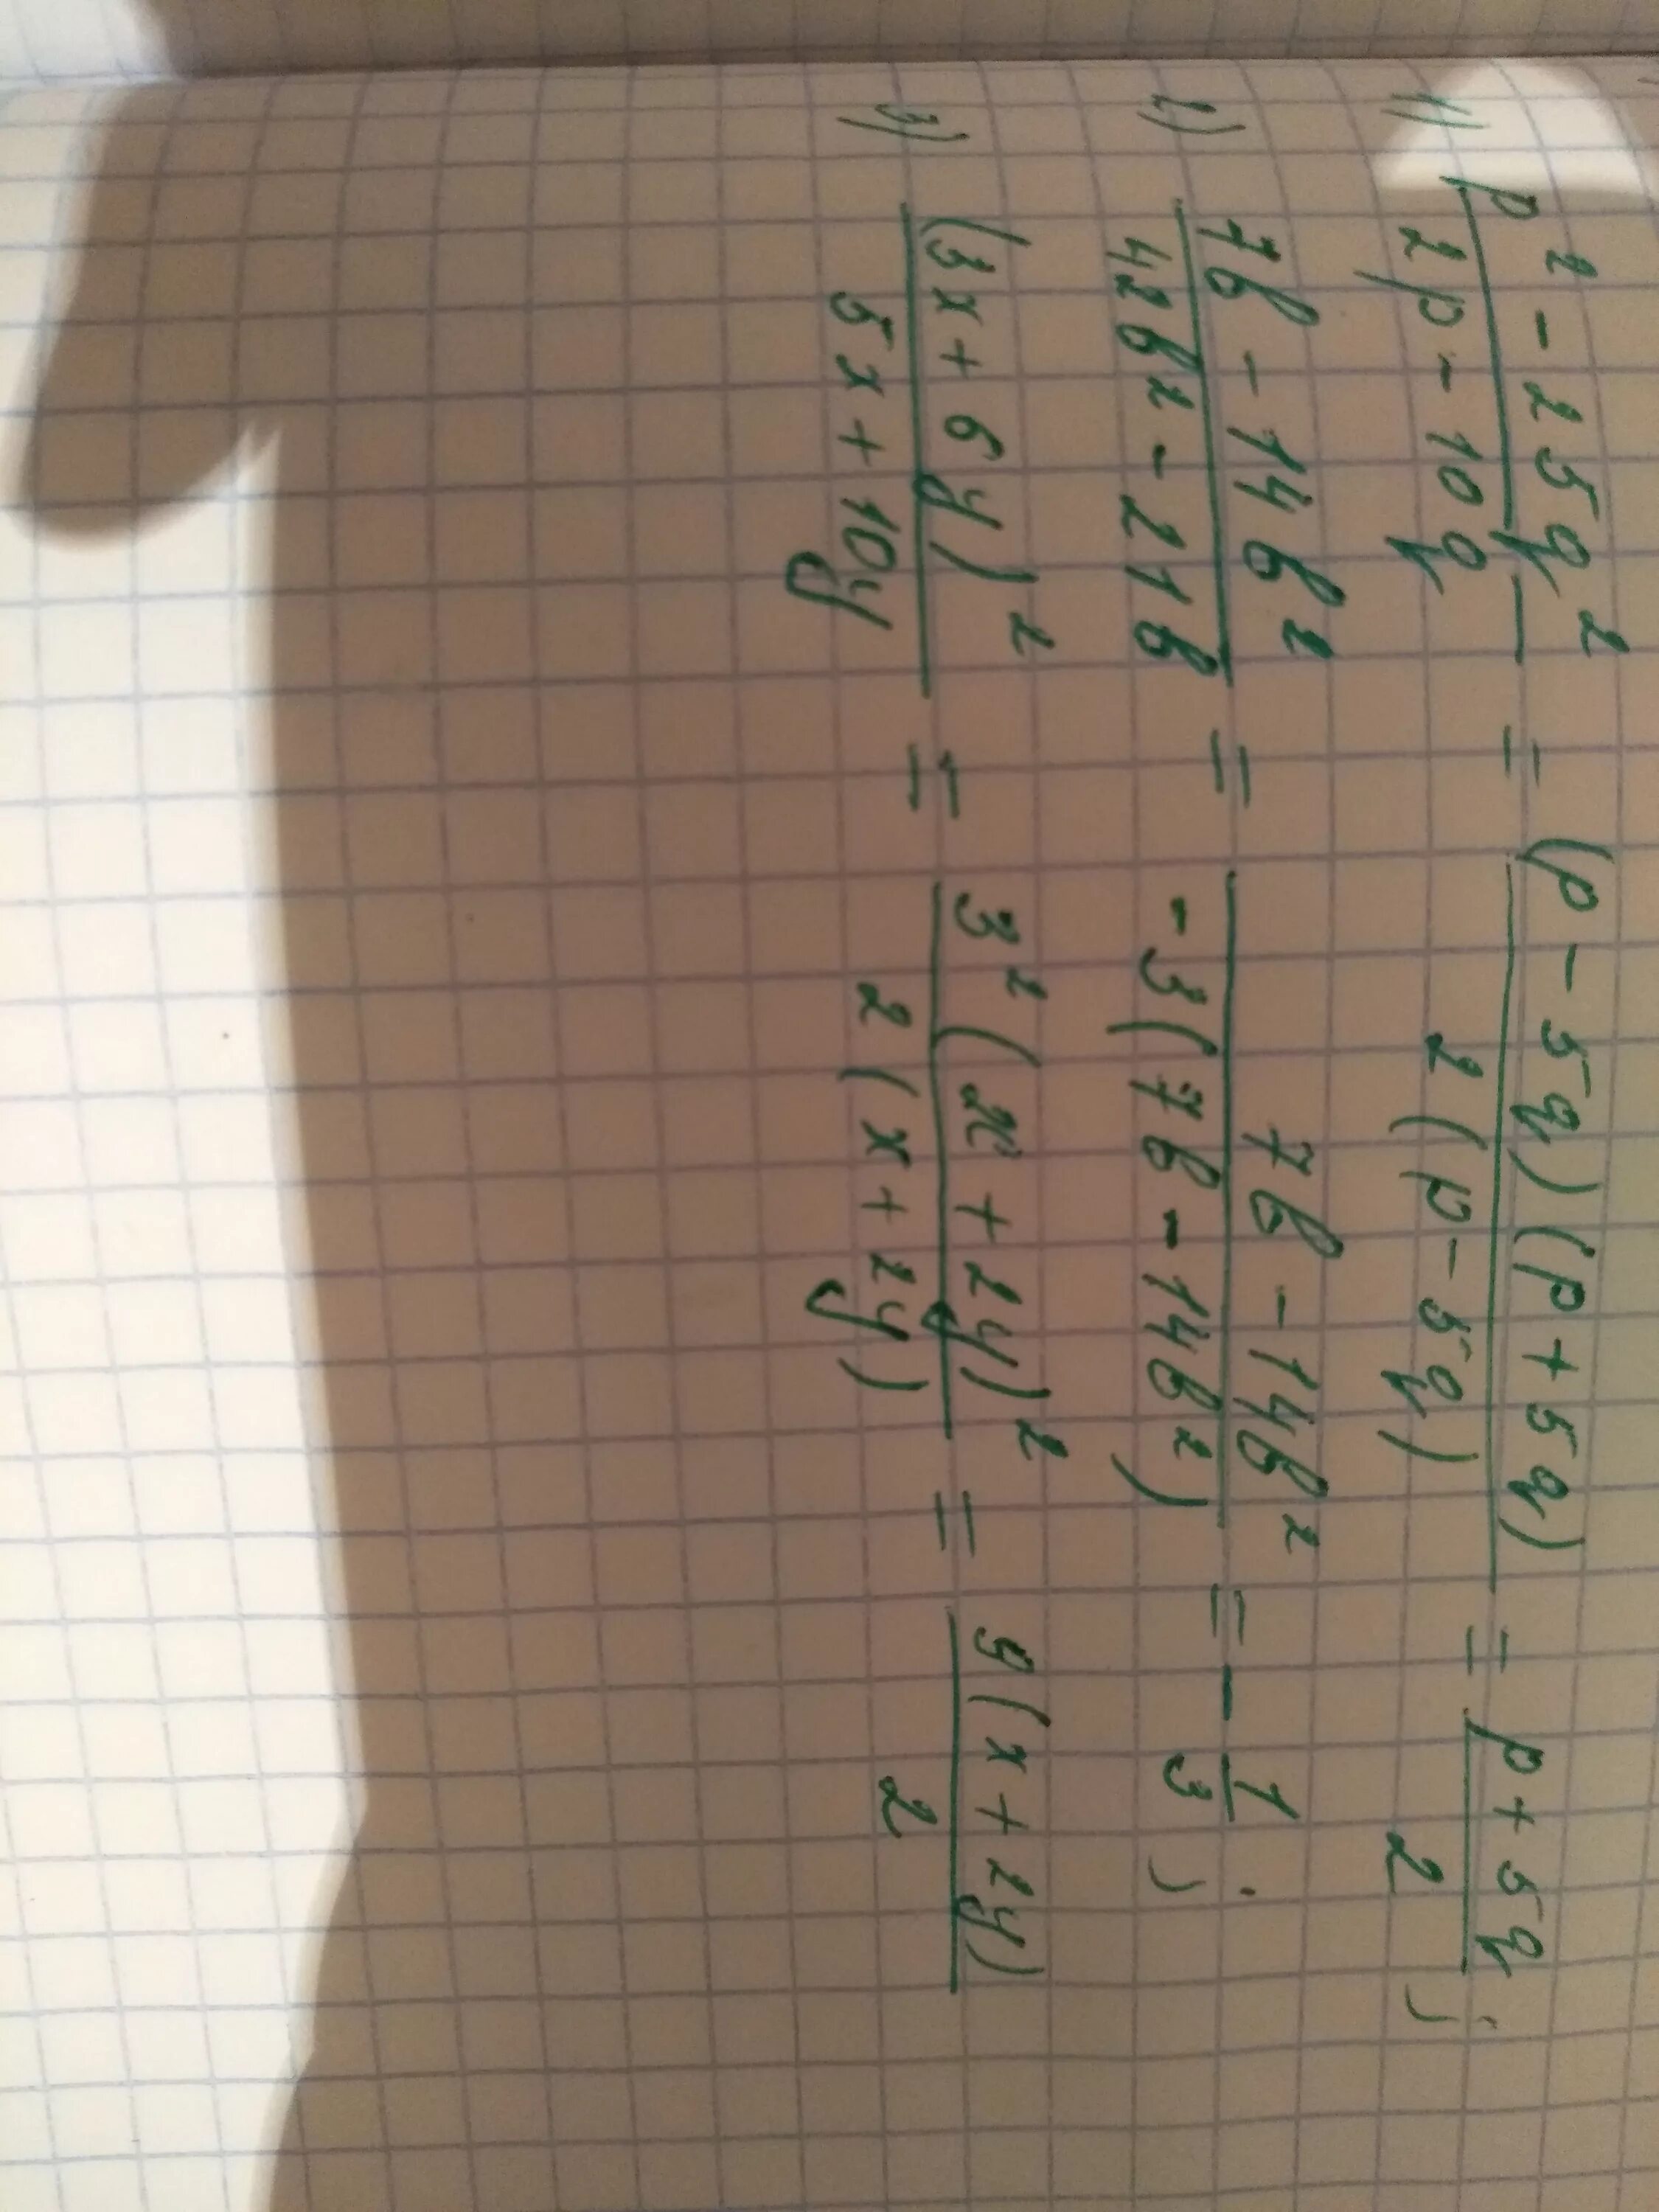 1) (p² - 25q²)/(2p - 10q) = ((p - 5q)(p + 5q))/(2(p - 5q)) = (p + 5q)/2 ;
2) (7b - 14b²)/(42b² - 21b) = (7b - 14b²)/(-3(7b - 14b²)) = - 1/3 ;
3) (3x + 6y)²/(5x + 10y) = (3²(x + 2y)²)/(2(x + 2y)) = (9(x + 2y))/2